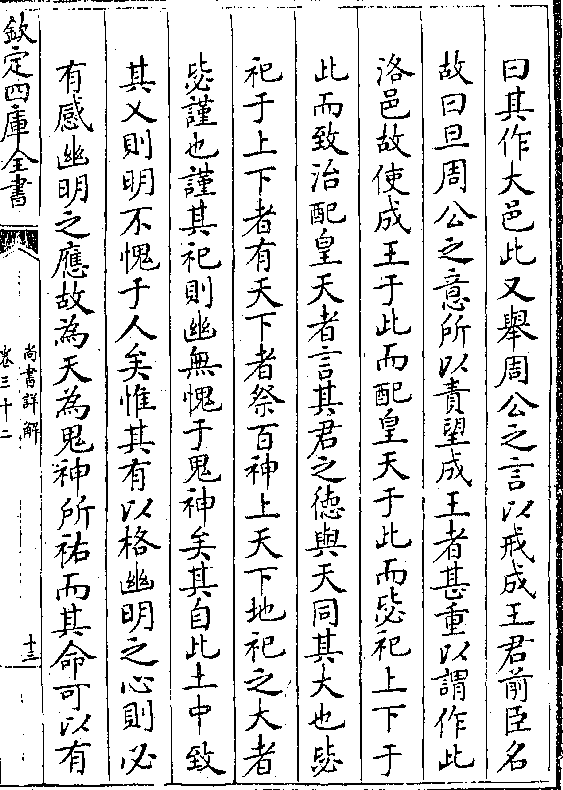 曰其作大邑此又舉周公之言以戒成王君前臣名
故曰旦周公之意所以責望成王者甚重以謂作此
洛邑故使成王于此而配皇天于此而毖祀上下于
此而致治配皇天者言其君之徳與天同其大也毖
祀于上下者有天下者祭百神上天下地祀之大者
毖謹也謹其祀則幽無愧于鬼神矣其自此土中致
其乂則明不愧于人矣惟其有以格幽明之心則必
有感幽明之應故為天為鬼神所祐而其命可以有
欽定四庫全書
尚書詳解
卷三十二
十三